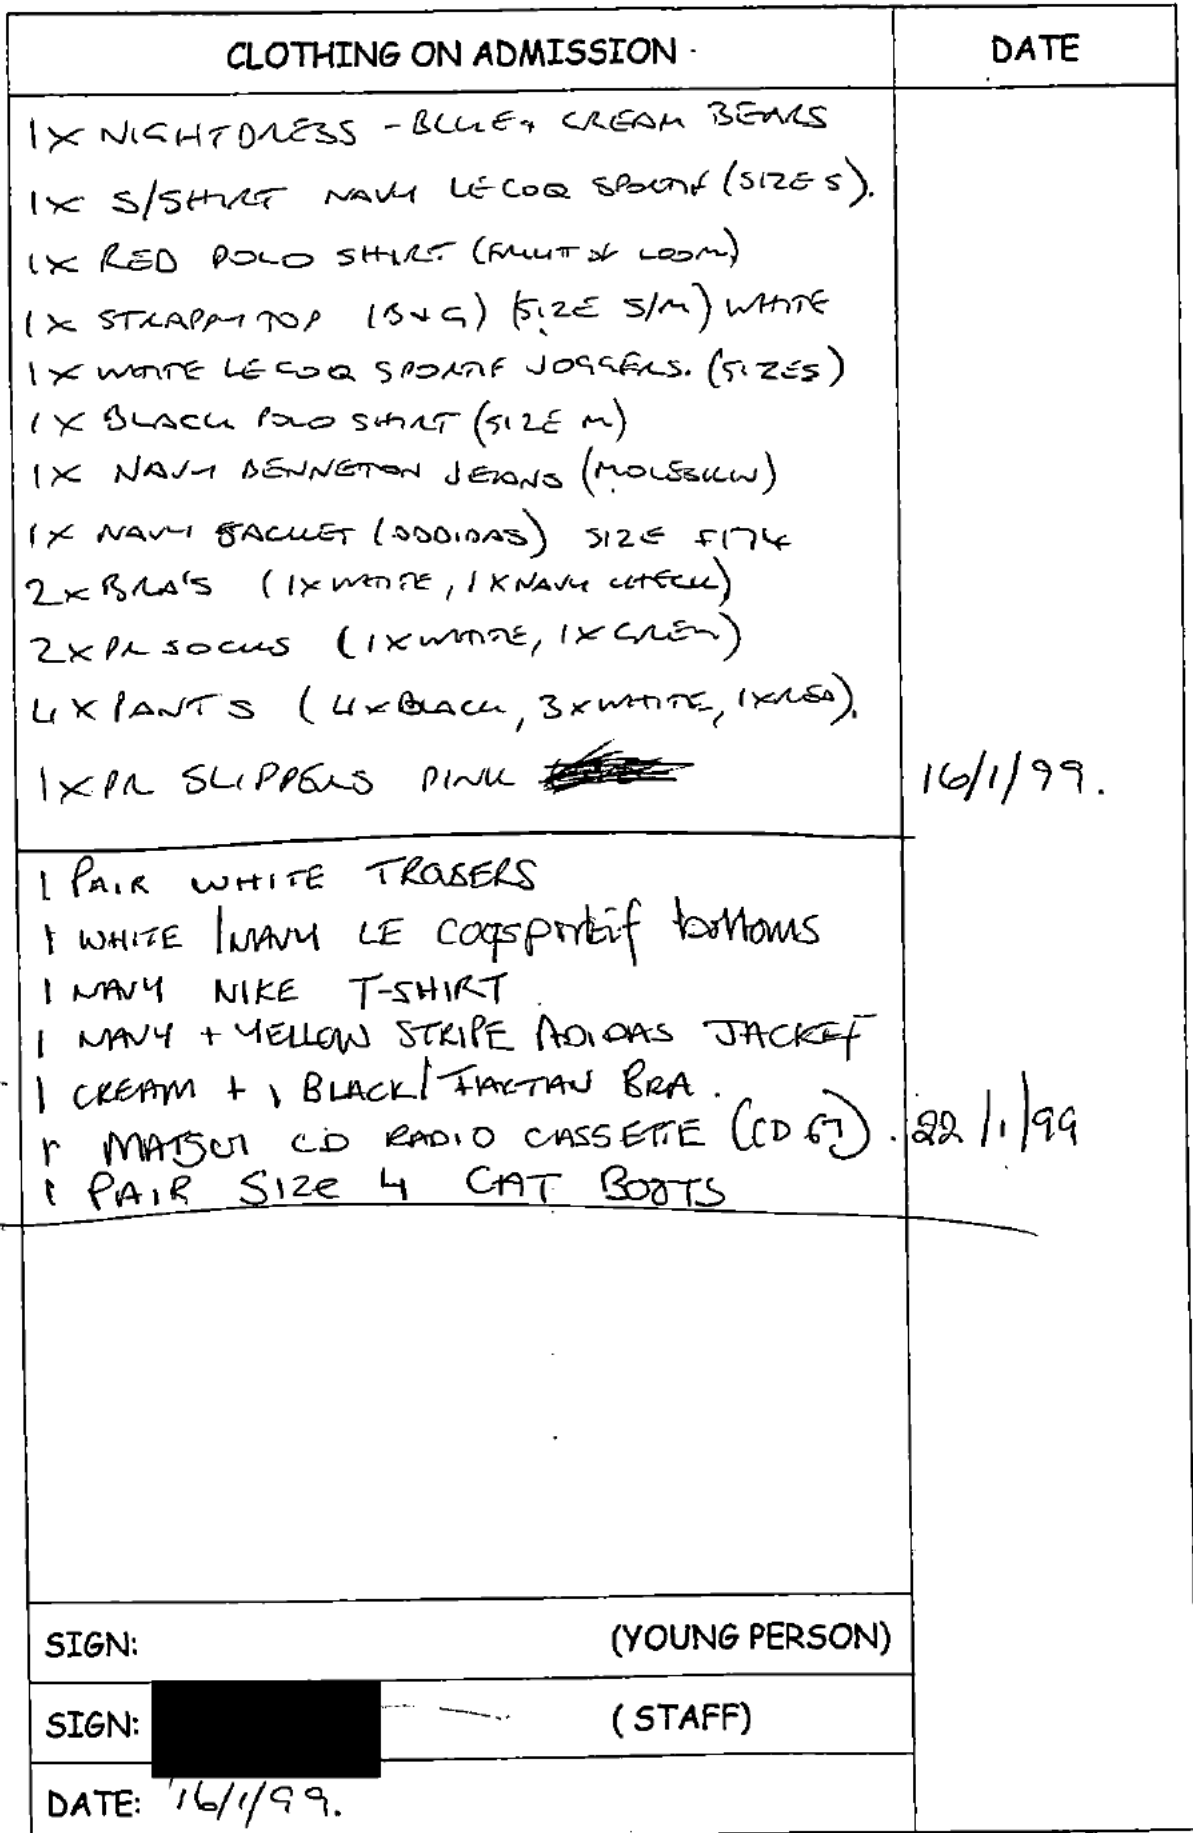 CLOTHING ON ADMISSION DATE
1X NIGHTDRESS - BLUE + CREAM BEARS
1X S/SHIRT NAVY LE COQ SPORTIF (SIZE S).
1X RED POLO SHIRT (FRUIT OF LOOM)
1X STRAPPY TOP (B+G) (SIZE S/M) WHITE
1X WHITE LE COQ SPORTIF JOGGERS. (SIZE S)
1X BLACK POLO SHIRT (SIZE M)
1X NAVY BENNETON JEANS (MOLESKIN)
1X NAVY JACKET (ADDIDAS) SIZE F174
2X BRA'S (1X WHITE, 1X NAVY CHECK)
2X PR SOCKS (1X WHITE, 1X GREY)
4X PANTS (4X BLACK, 3X WHITE, 1X RED).
1X PR SLIPPERS PINK 16/1/99.
1 PAIR WHITE TROUSERS
1 WHITE / NAVY LE COQSPORTIF bottoms
1 NAVY NIKE T-SHIRT
1 NAVY + YELLOW STRIPE ADIDAS JACKET
1 CREAM + 1 BLACK/TARTAN BRA.
1 MATSUI CD RADIO CASSETTE (CD 67). 22/1/99
1 PAIR SIZE 4 CAT BOOTS
SIGN: (YOUNG PERSON)
SIGN: (STAFF)
DATE: 16/1/99.